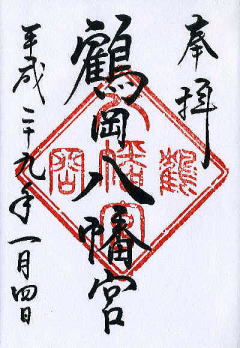 奉拝
鶴岡八幡宮
平成二十九年一月四日
鶴岡八幡宮